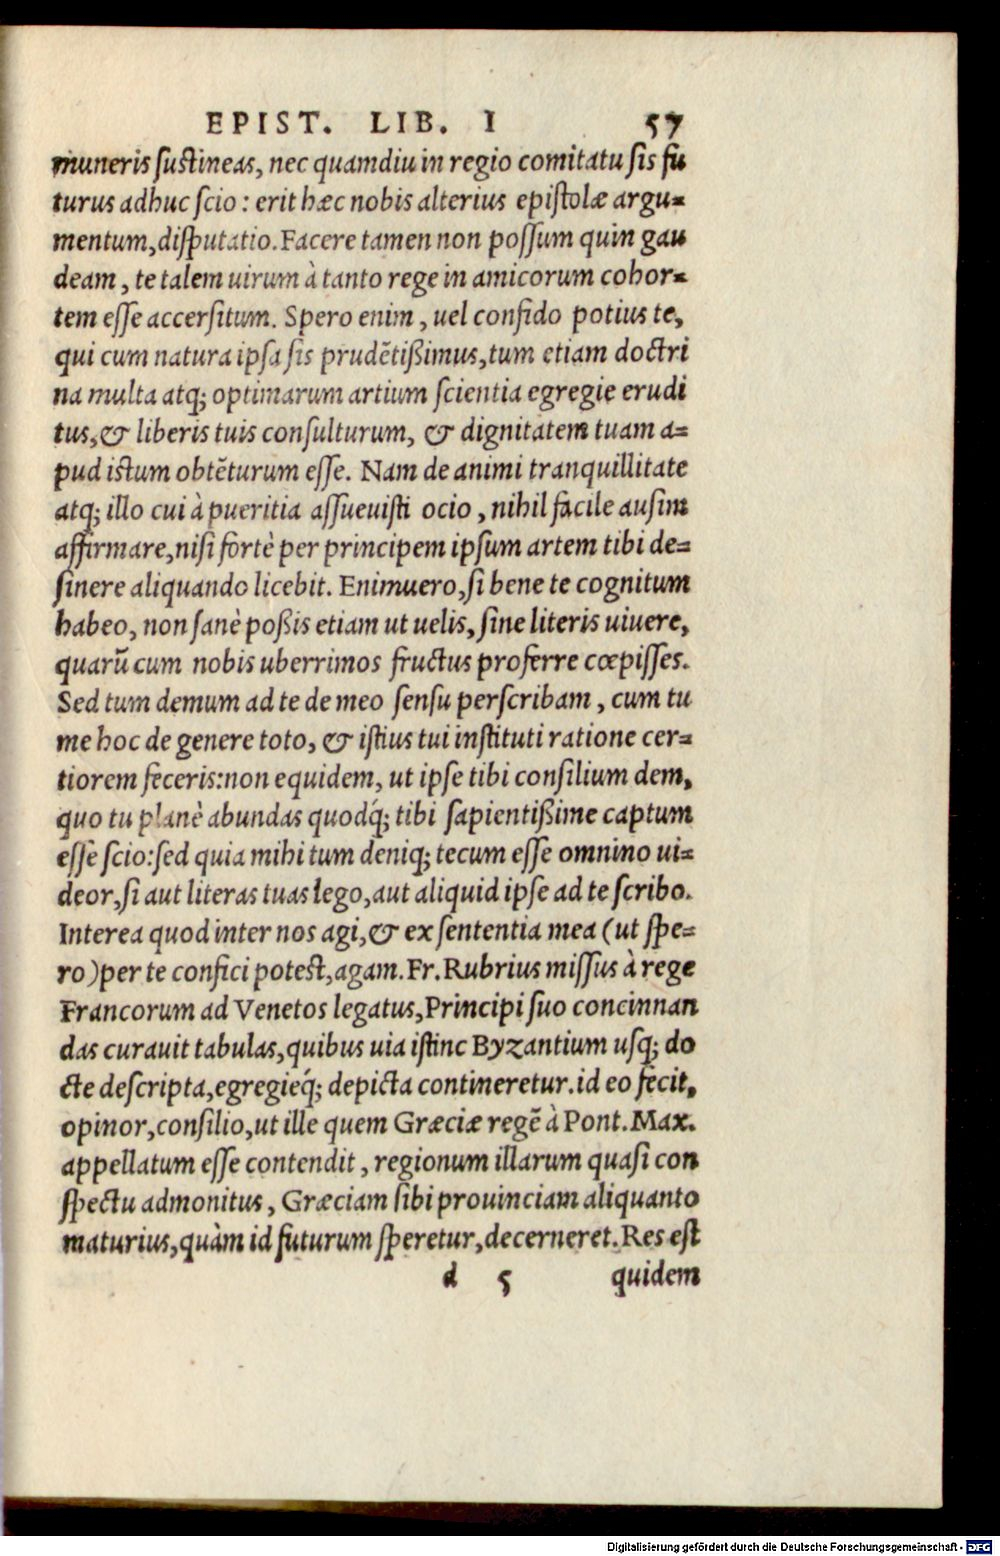 EPIST. LIB. I 57
muneris suſtineas, nec quamdiu in regio comitatu ſis fu
turus adhuc ſcio : erit hæc nobis alterius epiſtolæ argu=
mentum, diſputatio. Facere tamen non poſſum quin gau
deam, te talem uirum à tanto rege in amicorum cohor=
tem eſſe accerſitum. Spero enim, uel confido potius te,
qui cum natura ipſa ſis prudẽtißimus, tum etiam doctri
na multa atq; optimarum artium ſcientia egregie erudi
tus, & liberis tuis conſulturum, & dignitatem tuam a=
pud iſtum obtẽturum eſſe. Nam de animi tranquillitate
atq; illo cui à pueritia aſſueuiſti ocio, nihil facile auſim
affirmare, niſi fortè per principem ipſum artem tibi de=
ſinere aliquando licebit. Enimuero, ſi bene te cognitum
habeo, non ſanè poßis etiam ut uelis, ſine literis uiuere,
quarũ cum nobis uberrimos fructus proferre cœpiſſes.
Sed tum demum ad te de meo ſenſu perſcribam, cum tu
me hoc de genere toto, & iſtius tui inſtituti ratione cer=
tiorem feceris: non equidem, ut ipſe tibi conſilium dem,
quo tu planè abundas quodq́; tibi ſapientißime captum
eſſe ſcio: ſed quia mihi tum deniq; tecum eſſe omnino ui=
deor, ſi aut literas tuas lego, aut aliquid ipſe ad te ſcribo.
Interea quod inter nos agi, & ex ſententia mea (ut ſpe=
ro) per te confici poteſt, agam. Fr. Rubrius miſſus à rege
Francorum ad Venetos legatus, Principi ſuo concinnan
das curauit tabulas, quibus uia iſtinc Byzantium uſq; do
cte deſcripta, egregieq́; depicta contineretur. id eo fecit,
opinor, conſilio, ut ille quem Græciæ regẽ à Pont. Max.
appellatum eſſe contendit, regionum illarum quaſi con
ſpectu admonitus, Græciam ſibi prouinciam aliquanto
maturius, quàm id futurum ſperetur, decerneret. Res eſt
d 5 quidem
Digitalisierung gefördert durch die Deutsche Forschungsgemeinschaft - DFG